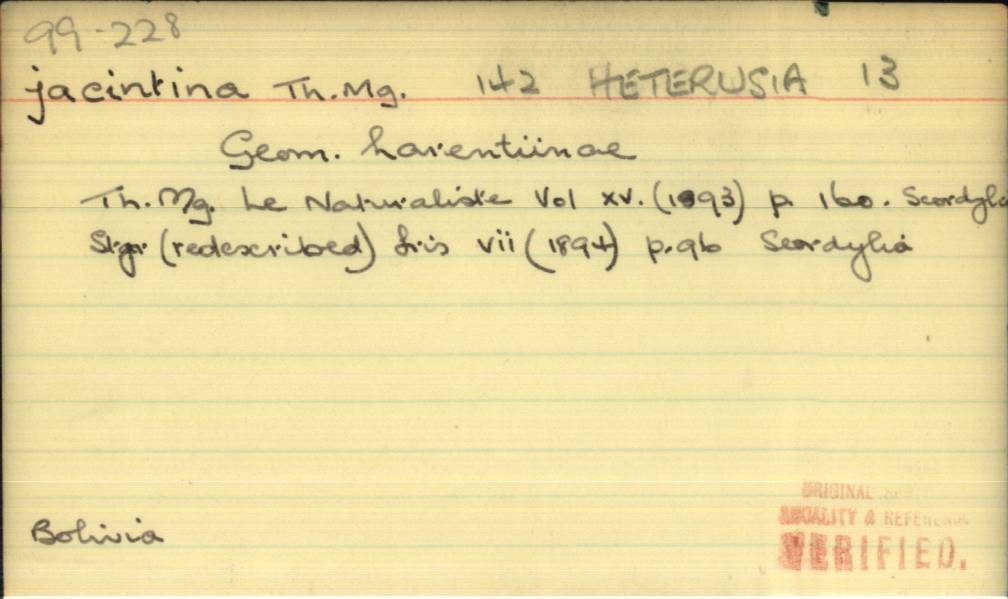 99-228
jacintina Th.Mg. 142 HETERUSIA 13
Geom. Larentiinae
Th. Mg. Le Naturaliste Vol xv. (1893) p. 160. Scordylia
Stgr (redescribed) Iris vii (1894) p.96 Scordylia
Bolivia
ORIGINAL
LOCALITY & REFERENCE
VERIFIED.